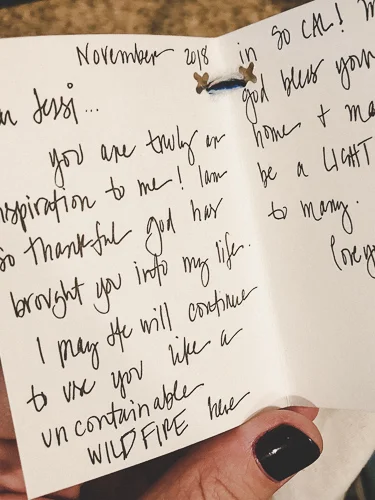 November 2018
Jessi...
you are truly an
inspiration to me! I am
so thankful god has
brought you into my life.
I pray He will continue
to use you like a
uncontainable
WILDFIRE here
in SO CAL!
god bless your
home + 
be a LIGHT
to many.
love